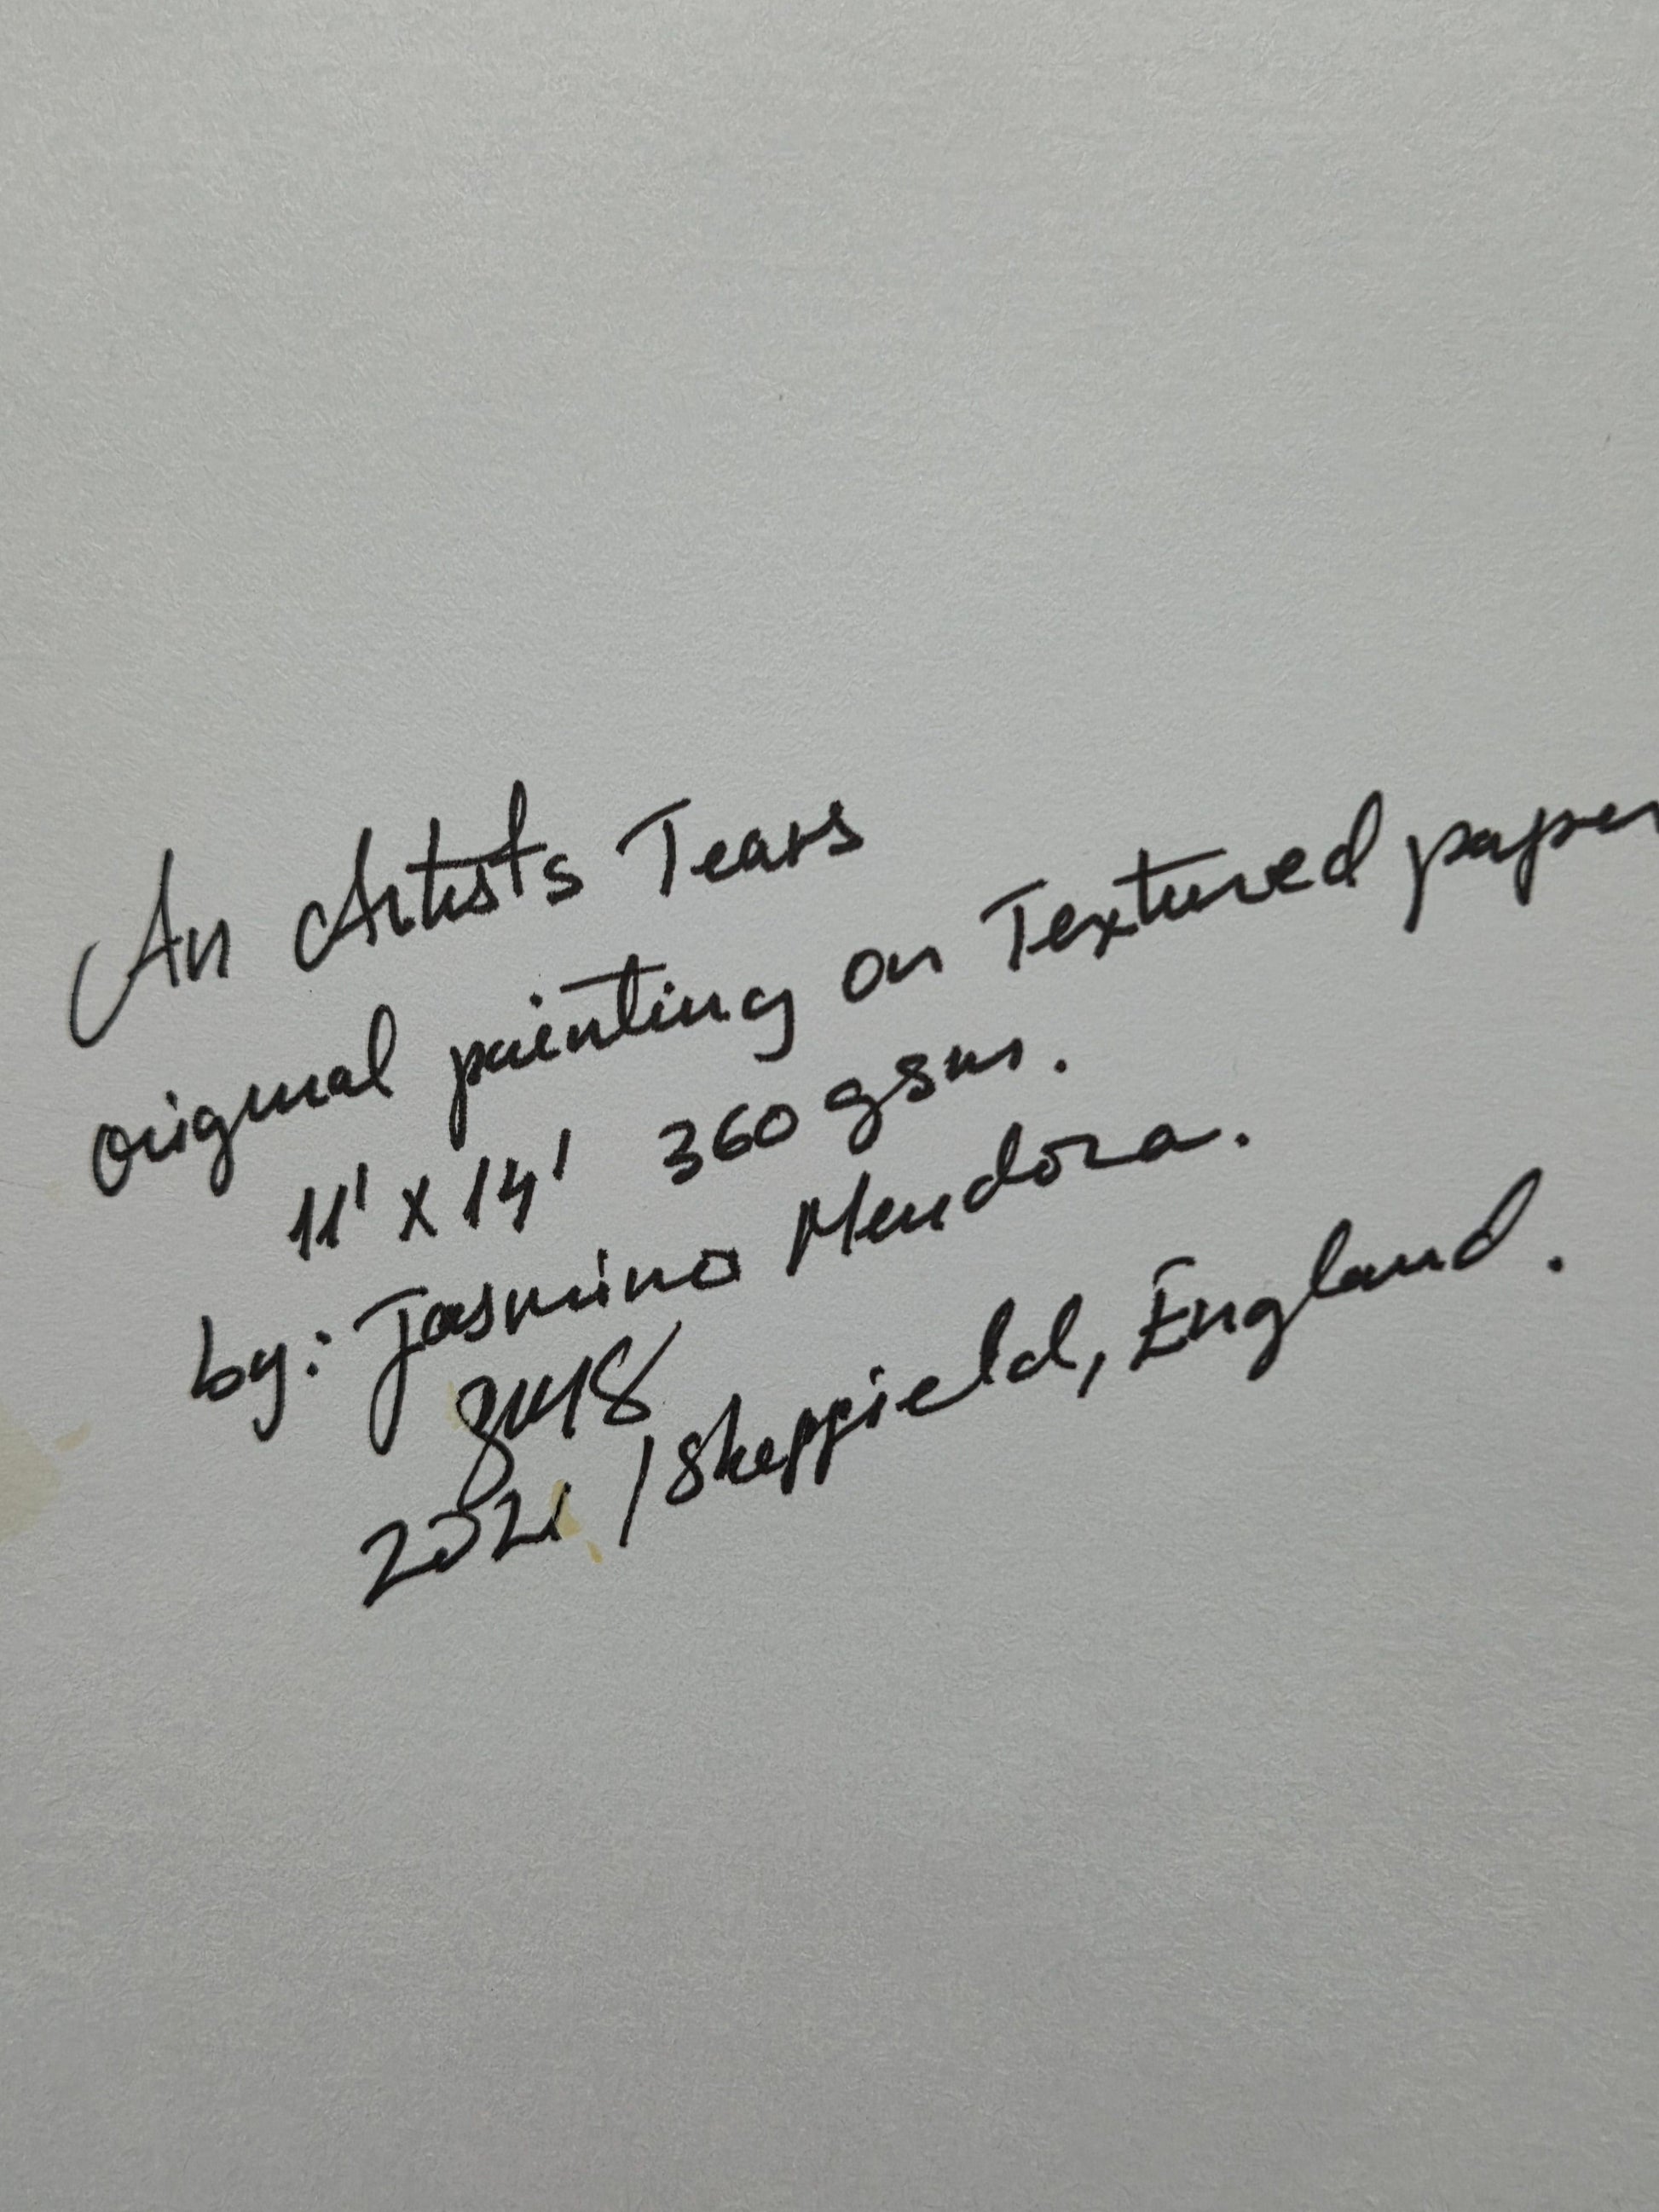 An Artists Tears
original painting on Textured paper
11' x 14' 360 gsm.
by: Jasmino Mendoza.
2021 / Sheffield, England.